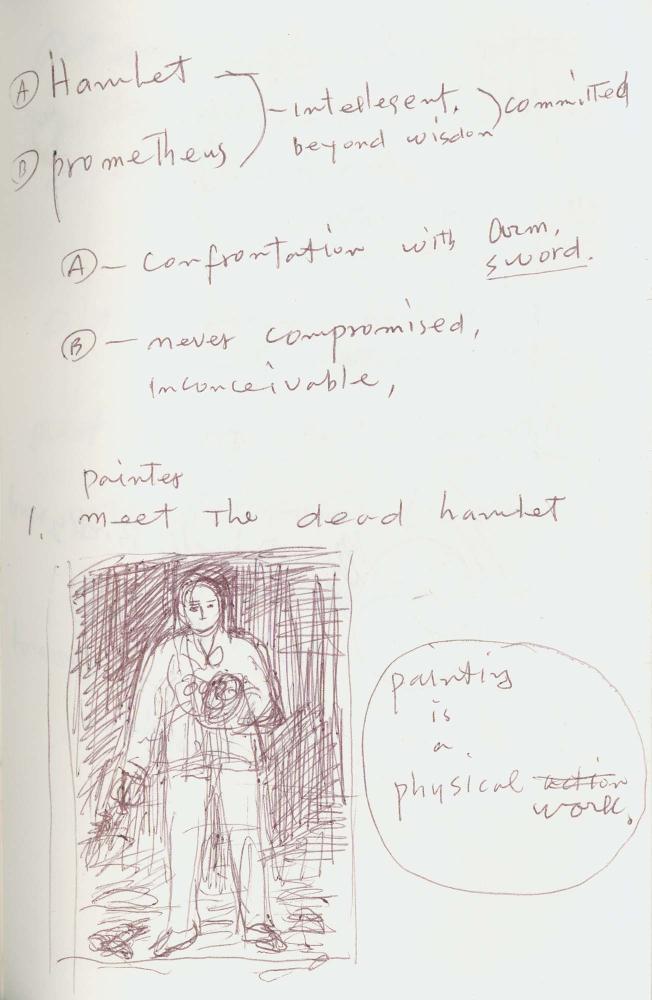 Ⓐ Hamlet
intellegent,
beyond wisdom
committed
Ⓑ prometheus
Ⓐ – confrontation with arm,
sword.
Ⓑ – never compromised,
inconceivable,
painter
1. meet The dead hamlet
painting
is
a
physical action
work.